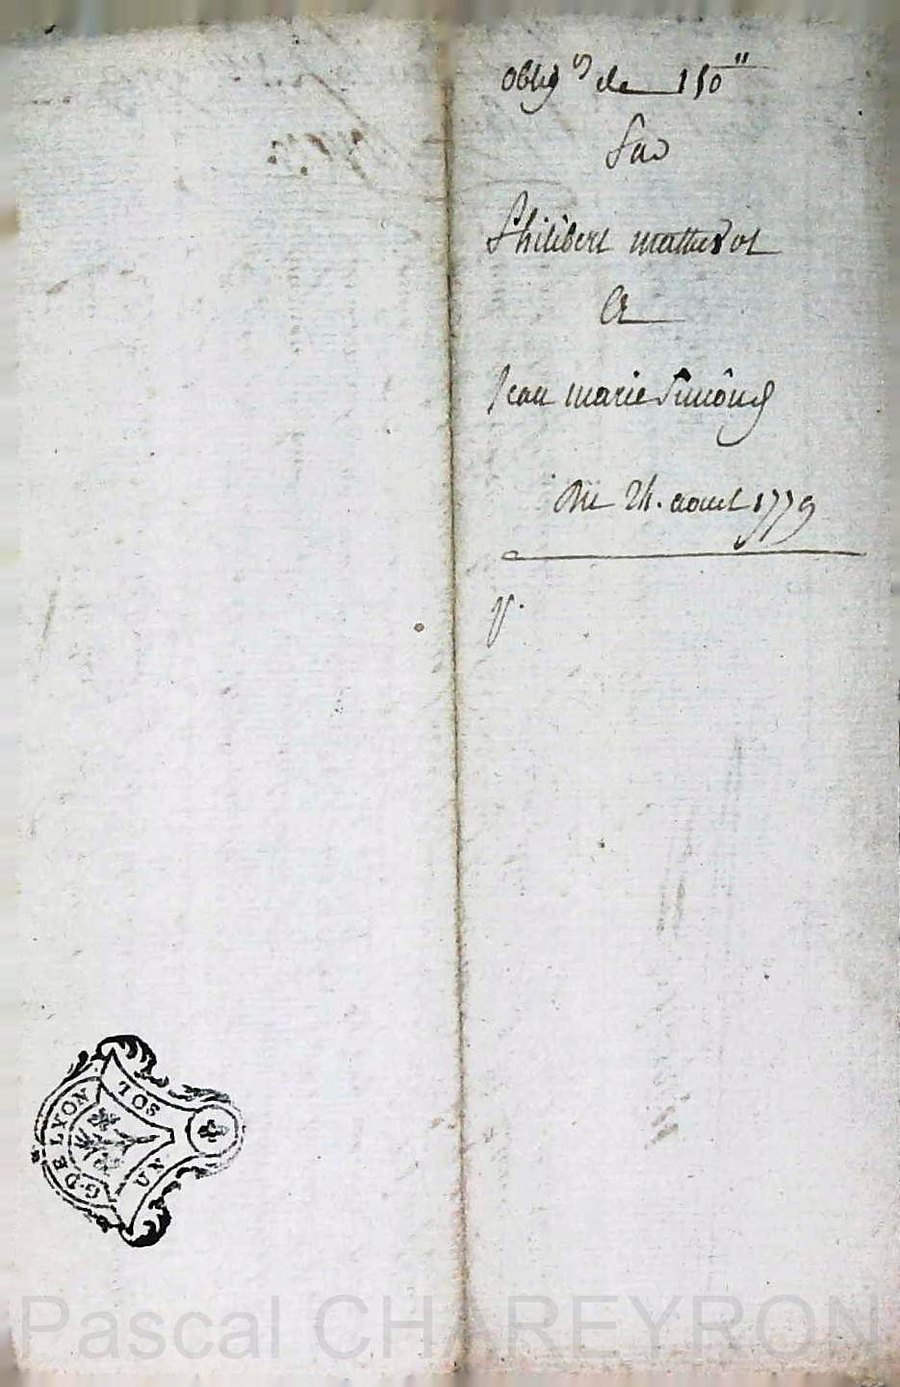 oblig^on de 150^"
Par
Philibert matherot
A
Jean marie Simônd
Du 24. aout 1779
G. DE LYON
UN SOL
Pascal CHAREYRON